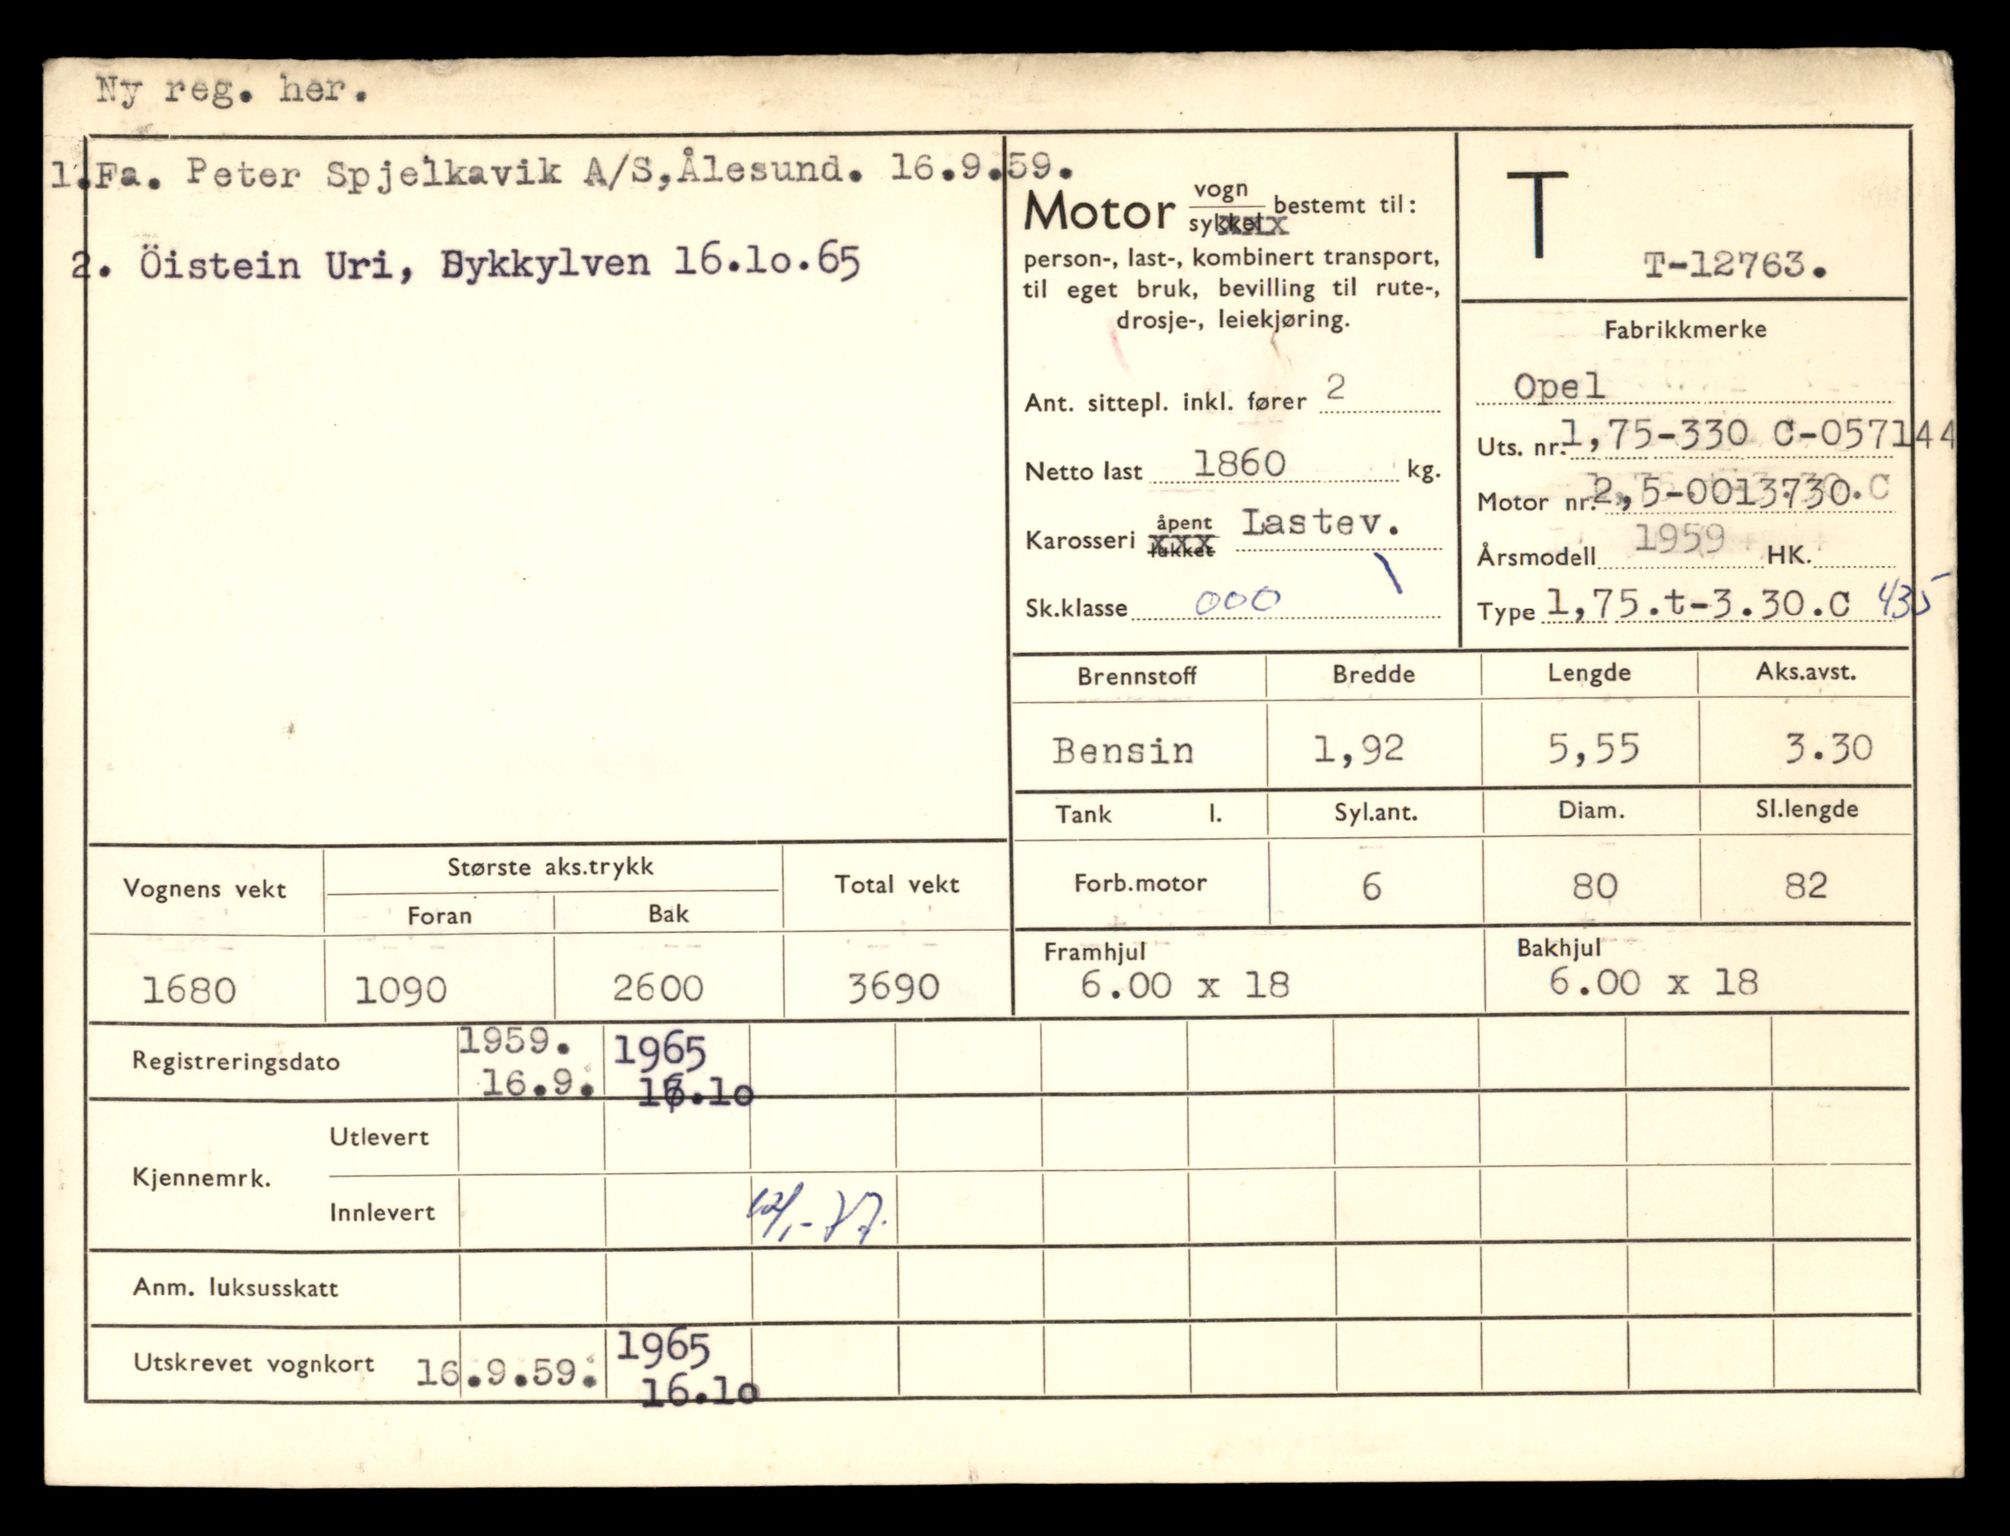 Ny reg. her.
1.Fa. Peter Spjelkavik A/S,Ålesund. 16.9.59.
2. Öistein Uri, Sykkylven 16.10.65
Motor vogn bestemt til:
sykkel
person-, last-, kombinert transport,
til eget bruk, bevilling til rute-,
drosje-, leiekjøring.
Ant. sittepl. inkl. fører 2
Netto last 1860 kg.
Karosseri åpent Lastev.
lukket
Sk.klasse 000
T
T-12763.
Fabrikkmerke
Opel
Uts. nr. 1,75-330 C-057144
Motor nr. 2,5-0013730.C
Årsmodell 1959 HK.
Type 1,75.t-3.30.C 435
Brennstoff Bredde Lengde Aks.avst.
Bensin 1,92 5,55 3.30
Tank l. Syl.ant. Diam. Sl.lengde
Forb.motor 6 80 82
Framhjul Bakhjul
6.00 x 18 6.00 x 18
Vognens vekt Største aks.trykk Total vekt
Foran Bak
1680 1090 2600 3690
Registreringsdato 1959. 1965
16.9. 16.10
Kjennemrk. Utlevert
Innlevert 12/1-77.
Anm. luksusskatt
Utskrevet vognkort 16.9.59. 1965
16.10